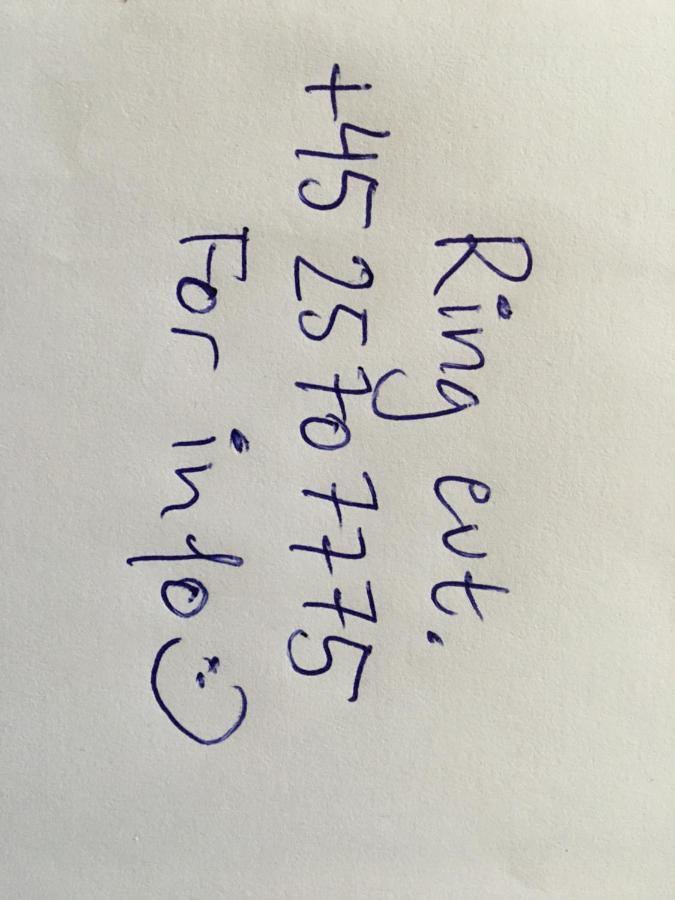 Ring evt.
+45 25 70 77 75
For info :)